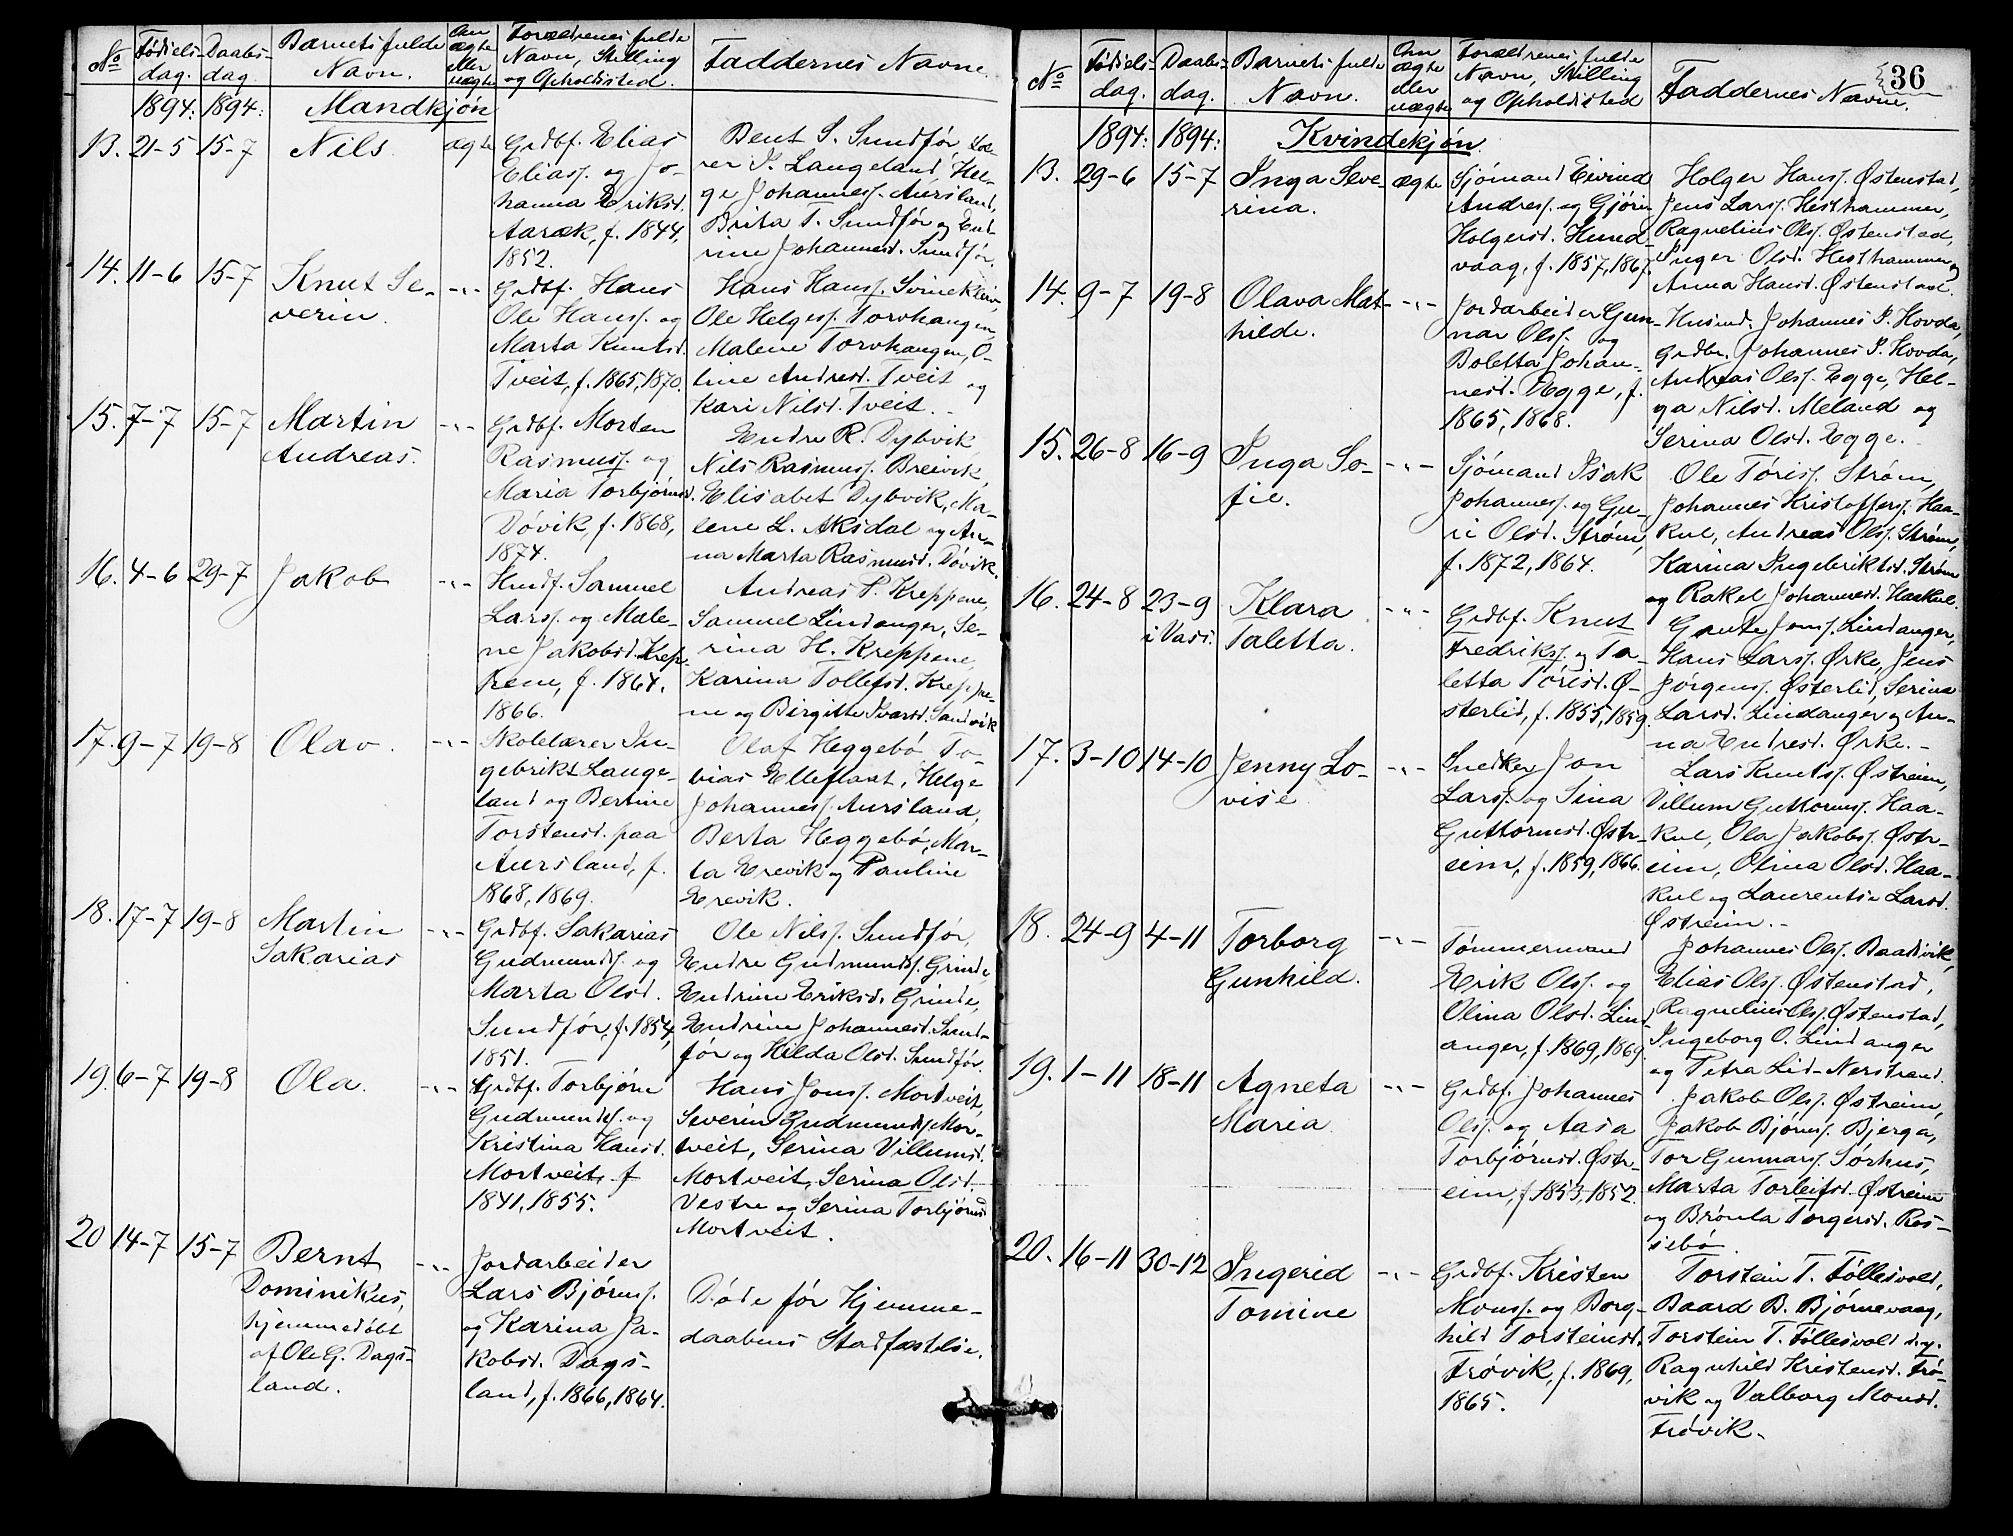 No
Fødsels-
dag.
Daabs-
dag.
Barnets fulde
Navn.
Om
ægte
eller
uægte
Forældrenes fulde
Navn, Stilling
og Opholdssted.
Faddernes Navne.
1894: 1894: Mandkjön
13. 21-5 15-7 Nils ægte
Grdbf. Elias
Eliass. og Jo-
hanna Eriksd.
Aaræk, f. 1844,
1852.
Bent S. Sundför, Sæ-
rer I. Langeland, Hel-
ge Johanness. Aursland,
Brita T. Sundför og End-
rine Johannesd. Sundför.
14. 11-6 15-7 Knut Se-
verin. -"-
Grdbf. Hans
Ole Hanss. og
Marta Knutsd.
Tveit, f. 1865, 1870.
Hans Hanss. Svineklaiv,
Ole Helgess. Torvhangen,
Malene Torvhangen, O-
line Andresd. Tveit og
Kari Nilsd. Tveit.
15. 7-7 15-7 Martin
Andreas. -"-
Grdbf. Morten
Rasmuss. og
Maria Torbjörnsd.
Dövik, f. 1868,
1874.
Endre R. Dybvik,
Nils Rasmuss. Breivik,
Elisabet Dybvik, Ma-
lene L. Aksdal og An-
na Marta Rasmusd. Dövik.
16. 4-6 29-7 Jakob -"-
Husf. Samuel
Larss. og Male-
ne Jakobsd. Krep-
pene, f. 1864,
1866.
Andreas P. Kreppene,
Samuel Lindanger, Se-
rina H. Kreppene,
Karina Tollefsd. Kreppe-
ne og Birgitte Ivarsd. Sandvik
17. 9-7 19-8 Olav. -"-
Skolelærer In-
gebrikt Lange-
land og Bertine
Torstensd. paa
Aursland, f.
1868, 1869.
Olaf Heggebö, To-
bias Elleflaat, Helge
Johanness. Aursland,
Berta Heggebö, Mar-
ta Erevik og Pauline
Erevik.
18. 17-7 19-8 Martin
Sakarias -"-
Grdbf. Sakarias
Gudmunds. og
Marta Olsd.
Sundför, f. 1854,
1851.
Ole Nilss. Sundför,
Endre Gudmunds. Grinde,
Endrine Eriksd. Grinde,
Endrine Johannesd. Sund-
för og Hilda Olsd. Sundför.
19. 6-7 19-8 Ola. -"-
Grdbf. Torbjörn
Gudmunds. og
Kristina Hansd.
Mortveit, f
1841, 1855.
Hans Jonss. Mortveit,
Severin Gudmunds. Mor-
tveit, Serina Villumsd.
Mortveit, Serina Olsd.
Vestre og Serina Torbjörnsd.
Mortveit.
20 14-7 15-7 Bernt
Dominikus,
hjemmedöbt
af Ole G. Dags-
land. -"-
Jordarbeider
Lars Bjørnss.
og Karina Ja-
kobsd. Dags-
land, f. 1866, 1864.
Döde för Hjemme-
daabens Stadfæstelse.
36
No
Fødsels-
dag.
Daabs-
dag.
Barnets fulde
Navn.
Om
ægte
eller
uægte
Forældrenes fulde
Navn, Stilling
og Opholdssted
Faddernes Navne.
1894: 1894: Kvindekjön.
13. 29-6 15-7 Inga Seve-
rina. ægte
Sjömand Eivind
Andress. og Gjörin
Holgersd. Hund-
vaag, f. 1857, 1867.
Holger Hanss. Østenstad,
Jens Larss. Hesthammer,
Ragnelius Olss. Østenstad,
Inger Olsd. Hesthammer og
Anna Hansd. Østenstad.
14. 9-7 19-8 Olava Mat-
hilde. -"-
Jordarbeider Gun-
nar Olss. og
Boletta Johan-
nesd. Egge, f.
1865, 1868.
Husmd. Johannes P. Hovda,
Grdbr. Johannes P. Hovda,
Andreas Olss. Egge, Hel-
ga Nilsd. Meland og
Serina Olsd. Egge.
15. 26-8 16-9 Inga So-
fie. -"-
Sjömand Isak
Johanness. og Gu-
ri Olsd. Ström,
f. 1872, 1864.
Ole Töriss. Ström,
Johannes Kristoffers. Haa-
kul, Andreas Olss. Ström,
Karina Ingebriktsd. Ström
og Rakel Johannesd. Haakul.
16. 24-8 23-9
i Vats. Klara
Taletta. -"-
Grdbf. Knut
Fredrikss. og Ta-
letta Törisd. Ø-
sterlid, f. 1855, 1859.
Gaute Jonss. Lindanger,
Hans Larss. Ørke, Jens
Jörgenss. Østerlid, Serina
Larsd. Lindanger og An-
na Endresd. Ørke.
17. 3-10 14-10 Jenny Lo-
vise -"-
Snedker Jon
Larss. og Sina
Guttormsd. Østr-
eim, f. 1859, 1866.
Lars Knutss. Østreim,
Villum Guttormss. Haa-
kul, Ola Jakobss. Østr-
eim, Olina Olsd. Haa-
kul og Laurentse Larsd.
Østreim.
18. 24-9 4-11 Torborg
Gunhild. -"-
Tömmermand
Erik Olss. og
Olina Olsd. Lind-
anger, f. 1869, 1869
Johannes Olss. Baadsvik,
Elias Olss. Østenstad,
Ragnelius Olss. Østenstad,
Ingeborg O. Lindanger
og Petra Lid-Nerstrand.
19. 1-11 18-11 Agneta
Maria. -"-
Grdbf. Johannes
Olss. og Aasa
Torbjörnsd. Østr-
eim, f. 1853, 1852.
Jakob Olss. Østreim,
Jakob Bjørnss. Bjerga,
Tor Gunnarss. Sörhus,
Marta Torleifsd. Østreim
og Brönla Torgersd. Ros-
sebö
20. 16-11 30-12 Ingerid
Tomine -"-
Grdbf. Kristen
Monss. og Borg-
hild Torsteinsd.
Trövik, f. 1869,
1865.
Torstein T. Föllesvold,
Baard B. Bjørnevaag,
Torstein T. Föllesvold d.y.
Ragnhild Kristensd. Trö-
vik og Valborg Monsd.
Trövik.